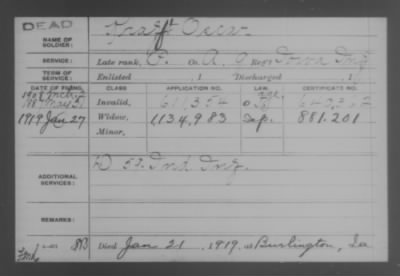 DEAD
NAME OF SOLDIER: Kraft Oscar
SERVICE: Late rank, Co. A, 9 Reg't Iowa Inf
TERM OF SERVICE: Enlisted , 1 Discharged , 1
DATE OF FILING. CLASS APPLICATION NO. LAW. CERTIFICATE NO.
Invalid, 611,354
1919 Jan 27 Widow, 1134,983 881.201
Minor,
ADDITIONAL SERVICES: D 53 Ind Inf.
REMARKS:
Died Jan 21, 1919, at Burlington, Ia